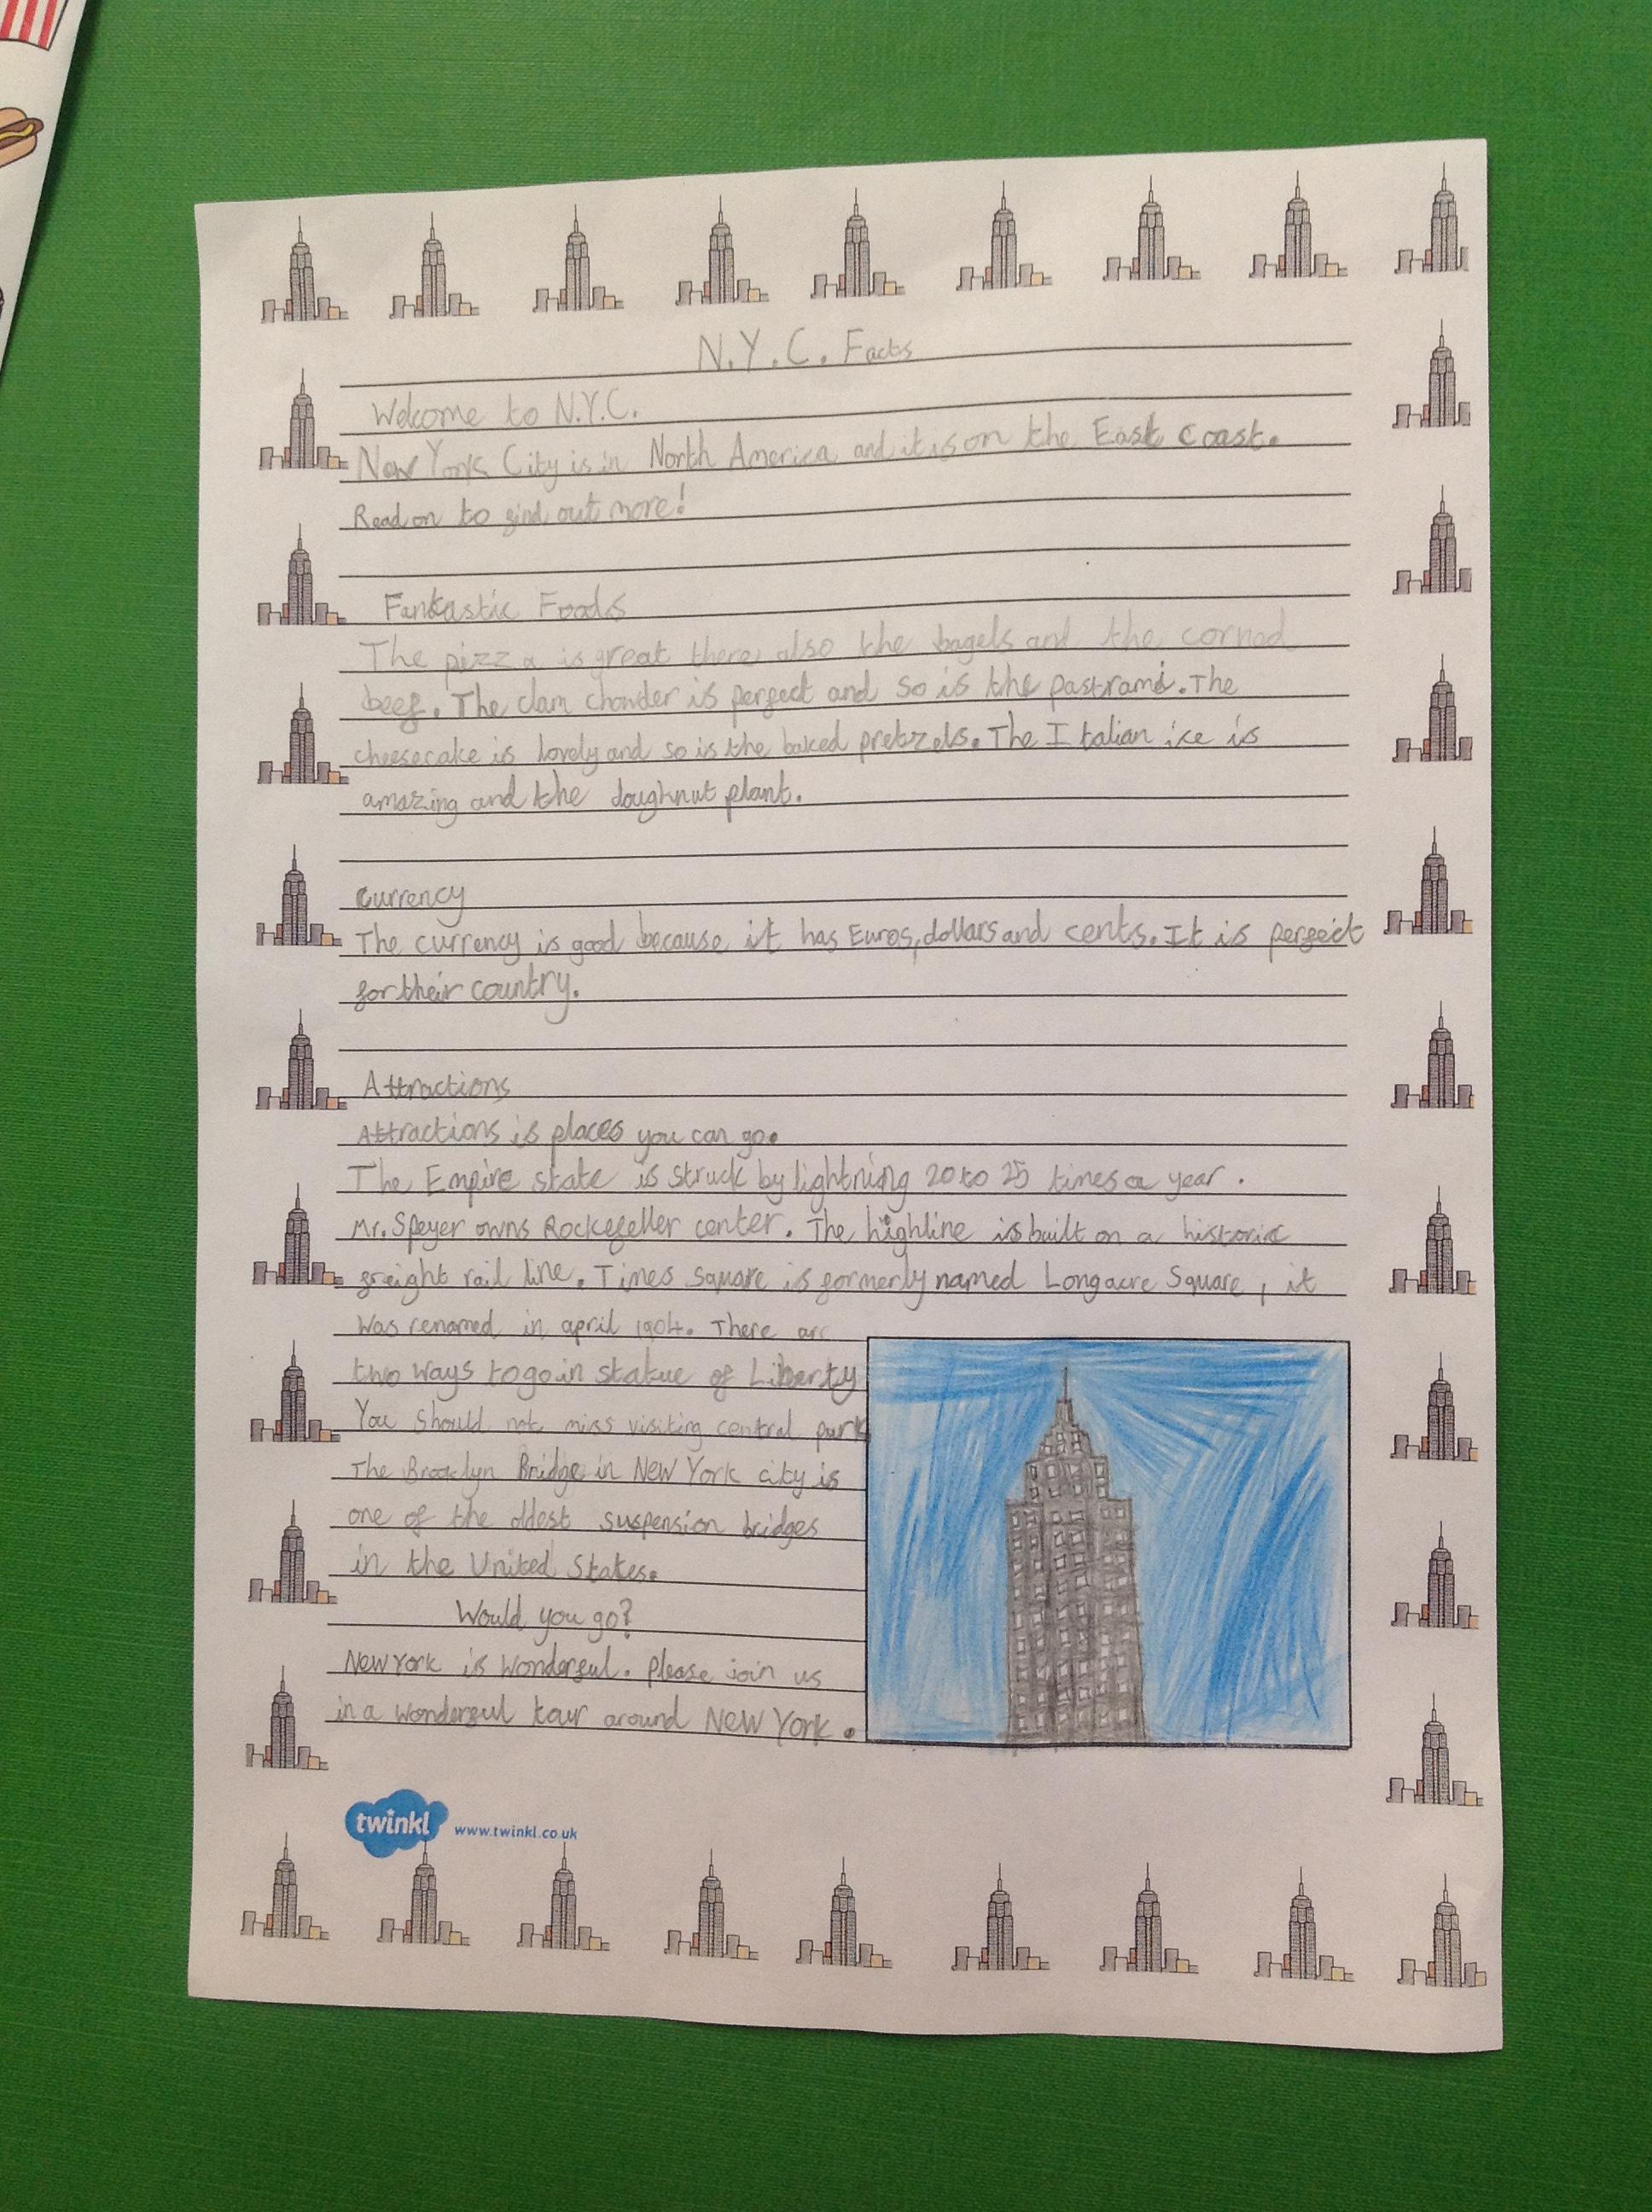 N.Y.C. Facts
Welcome to N.Y.C.
New York City is in North America and it is on the East Coast.
Read on to find out more!
Fantastic Foods
The pizza is great there also the bagels and the corned
beef. The clam chowder is perfect and so is the pastrami. The
cheesecake is lovely and so is the baked pretzels. The Italian ice is
amazing and the doughnut plant.
Currency
The currency is good because it has Euros, dollars and cents. It is perfect
for their country.
Attractions
Attractions is places you can go.
The Empire state is struck by lightning 20 to 25 times a year.
Mr. Speyer owns Rockefeller center. The highline is built on a historic
freight rail line. Times Square is formerly named Longacre Square, it
was renamed in april 1904. There are
two ways to go in statue of Liberty
You should not miss visiting central park
The Brooklyn Bridge in New York city is
one of the oldest suspension bridges
in the United States.
Would you go?
New York is wonderful. Please join us
in a wonderful tour around New York.
twinkl www.twinkl.co.uk